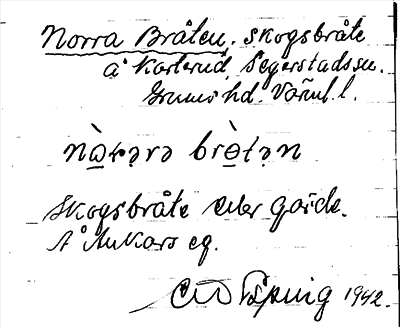 Norra Bråten, skogsbråte
å Karterud, Segerstads sn.
Grums hd. Värml. l.
nò̱rərə brò̱tən
Skogsbråte eller gärde.
Å Ankars eg.
1942.